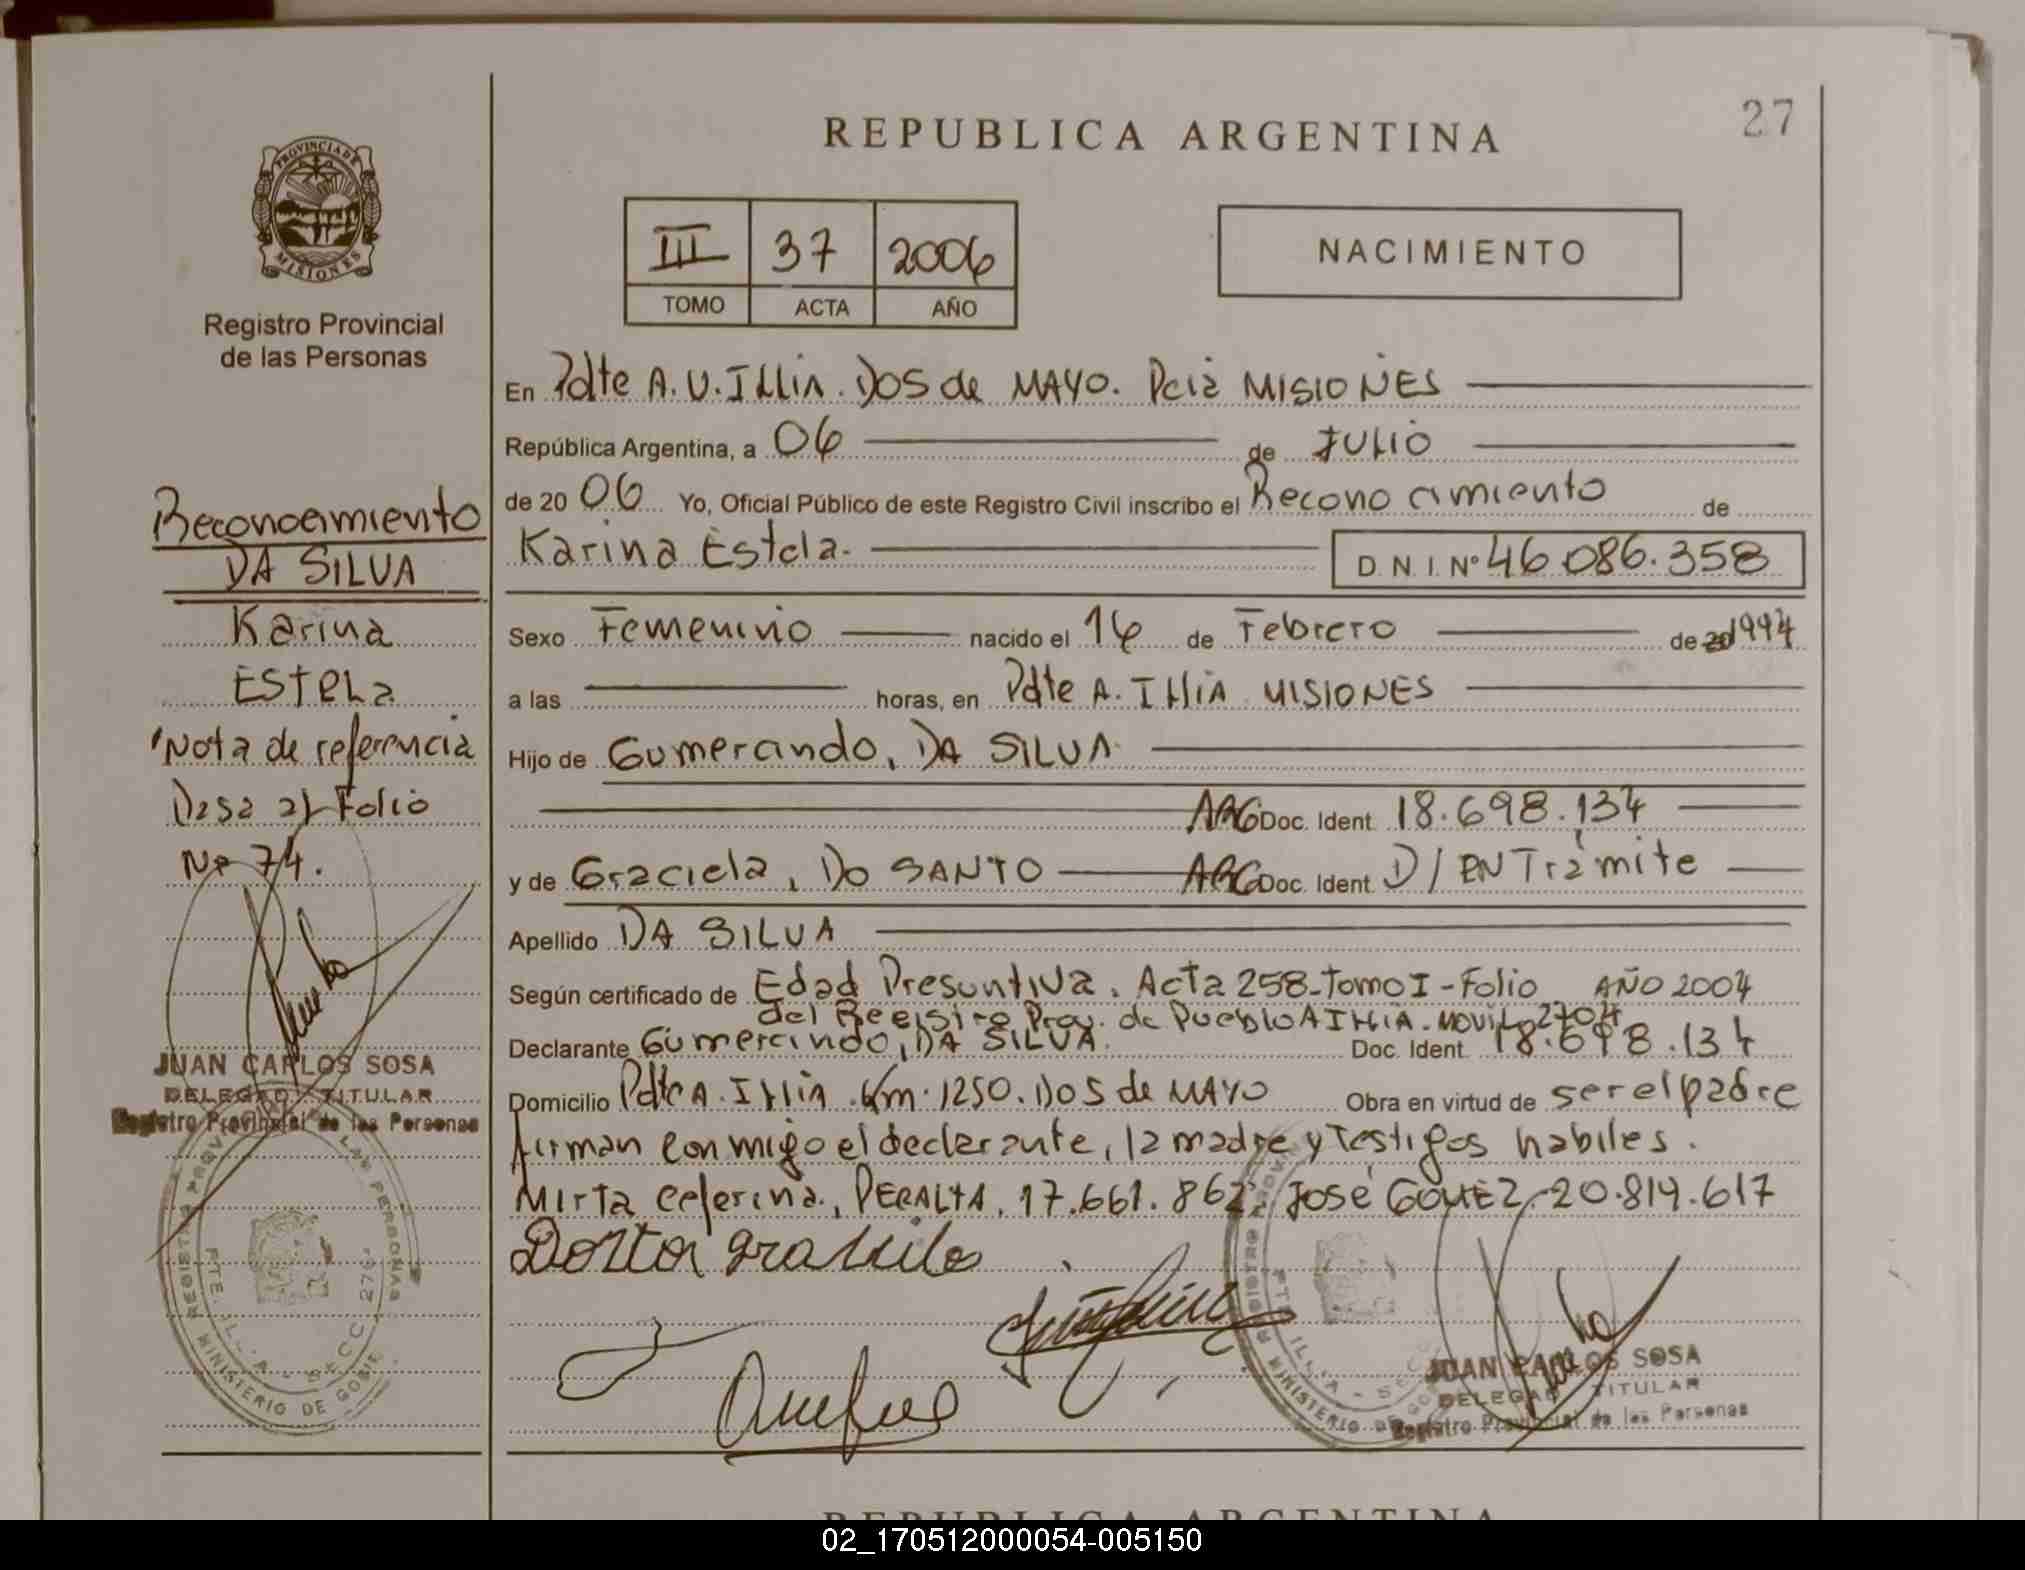 REPUBLICA ARGENTINA
27
PROVINCIA DE
MISIONES
Registro Provincial
de las Personas
III 37 2006
TOMO ACTA AÑO
NACIMIENTO
En Pdte A.U.Illia. Dos de MAYO. Pcia MISIONES
República Argentina, a 06 de JULIO
de 20 06 Yo, Oficial Público de este Registro Civil inscribo el Reconocimiento de
Karina Estela. D.N.I. Nº 46.086.358
Sexo Femenino nacido el 16 de Febrero de 20 1994
a las horas, en Pdte A. Illia MISIONES
Hijo de Gumercindo, DA SILVA
ARG Doc. Ident. 18.698.134
y de Graciela, Do SANTO ARG Doc. Ident. D/ EN Trámite
Apellido DA SILVA
Según certificado de Edad Presuntiva. Acta 258-Tomo I-Folio AÑO 2004
del Registro Prov. de Pueblo A Illia. MOVIL 2704
Declarante Gumercindo, DA SILVA. Doc. Ident. 18.698.134
Domicilio Pdte A. Illia. Km. 1250. Dos de MAYO Obra en virtud de ser el padre
firman conmigo el declarante, la madre y Testigos habiles.
Mirta Ceferina, PERALTA, 17.661.862 José GOMEZ. 20.819.617
Reconocimiento
DA SILVA
Karina
ESTELA
Nota de referencia
Pasa al Folio
Nº 74.
JUAN CARLOS SOSA
DELEGADO TITULAR
Registro Provincial de las Personas
REGISTRO PROVINCIAL DE LAS PERSONAS
PTE. ILLIA - SECC 270
MINISTERIO DE GOBIE
JUAN CARLOS SOSA
DELEGADO TITULAR
Registro Provincial de las Personas
REPUBLICA ARGENTINA
02_170512000054-005150